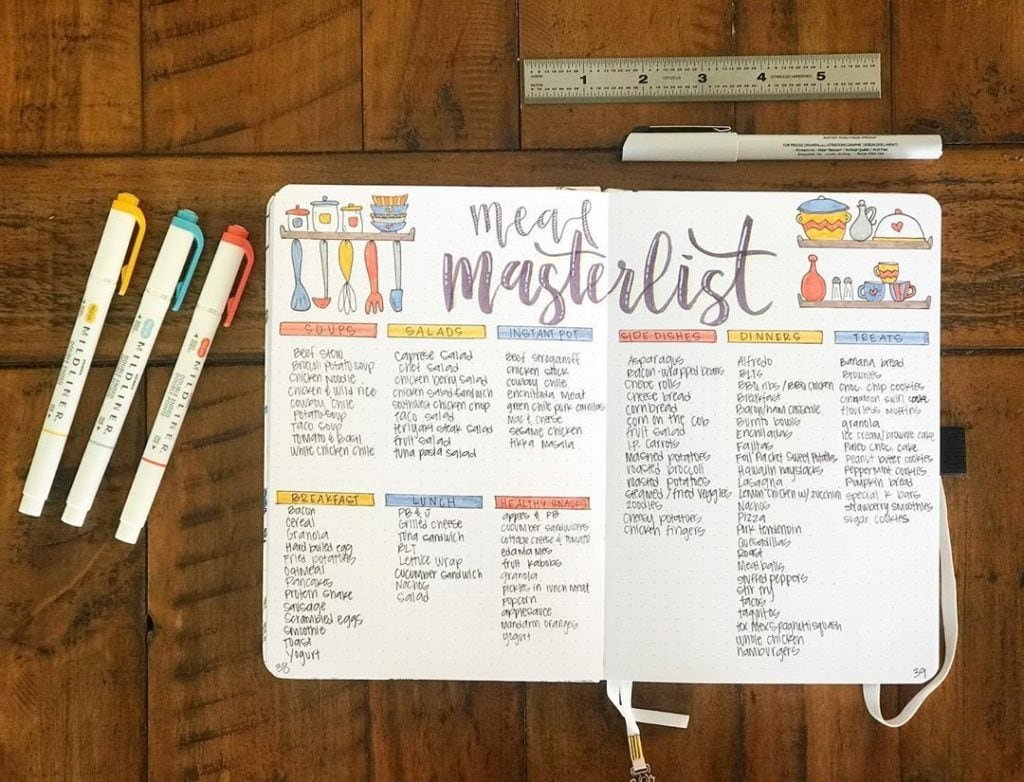 1 2 3 4 5
STAINLESS HARDENED
MILDLINER
MILDLINER
MILDLINER
meal
masterlist
SOUPS
Beef Stew
Broccoli Potato soup
chicken noodle
chicken & wild rice
cowboy chile
Potato soup
Taco soup
Tomato & Basil
white chicken chile
SALADS
caprese salad
chef salad
chicken berry salad
chicken salad sandwich
southwest chicken chop
taco salad
teriyaki steak salad
fruit salad
tuna pasta salad
INSTANT POT
Beef stroganoff
chicken stock
cowboy chile
enchilada meat
green chile pork carnitas
mac & cheese
sesame chicken
tikka masala
BREAKFAST
Bacon
cereal
Granola
Hard boiled egg
Fried potatoes
oatmeal
Pancakes
Protein shake
sausage
scrambled eggs
smoothie
Toast
Yogurt
38
LUNCH
PB & J
Grilled cheese
Tuna sandwich
BLT
Lettuce wrap
cucumber sandwich
Nachos
Salad
HEALTHY SNACKS
apples & PB
cucumber sandwiches
cottage cheese & tomato
edamames
fruit kabobs
granola
pickles in lunch meat
popcorn
applesauce
mandarin oranges
yogurt
SIDE DISHES
Asparagus
Bacon-wrapped beans
Chebe rolls
cheese bread
cornbread
corn on the cob
fruit salad
I.P. carrots
Mashed potatoes
roasted broccoli
roasted potatoes
steamed/fried veggies
zoodles
cheesy potatoes
chicken fingers
DINNERS
Alfredo
BLTs
BBQ ribs / BBQ chicken
Breakfast
Bacon/ham casserole
Burrito bowls
Enchiladas
Fajitas
Foil Packet Sweet Potatoes
Hawaiin haystacks
Lasagna
Lemon chicken w/ zucchini
Nachos
Pizza
Pork tenderloin
Quesadillas
Roast
Meatballs
stuffed peppers
stir fry
tacos
taquitos
tex Mex spaghetti squash
whole chicken
hamburgers
TREATS
Banana bread
Brownies
choc. chip cookies
cinnamon swirl cake
flourless muffins
granola
ice cream/brownie cake
Paleo choc. cake
Peanut butter cookies
Peppermint cookies
Pumpkin bread
special K bars
strawberry smoothies
sugar cookies
39